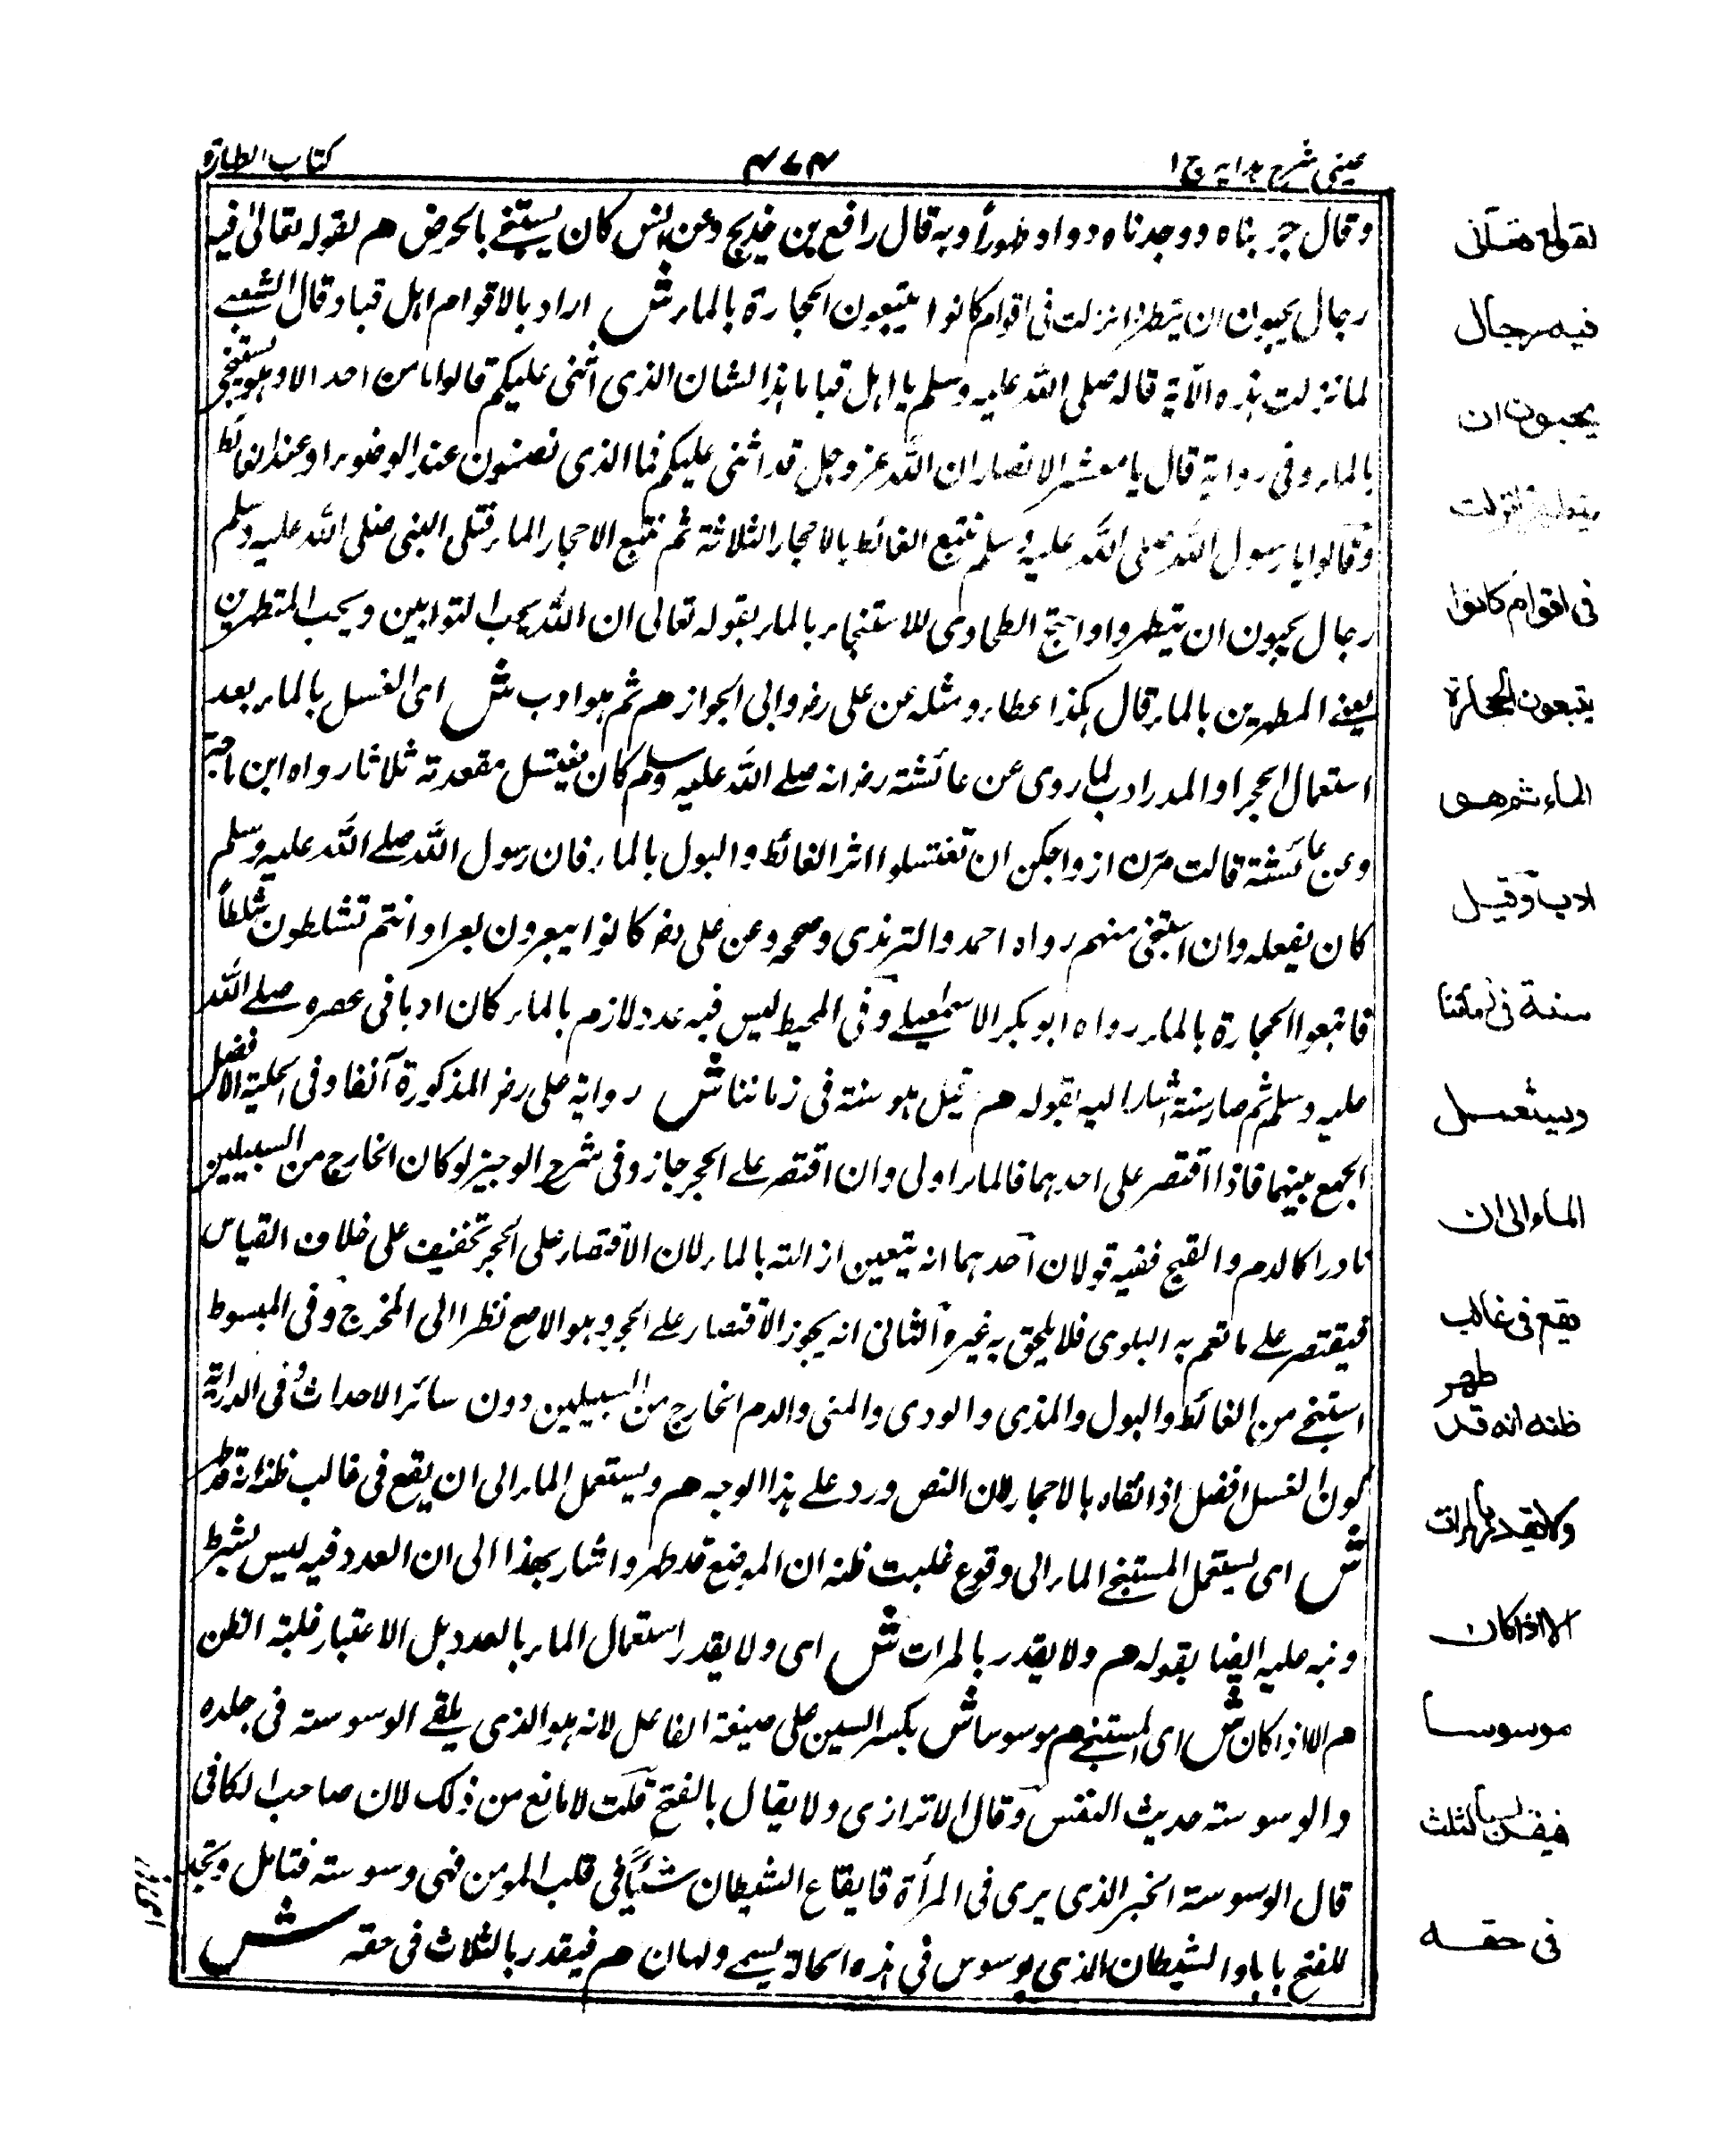 عینی شرح ہدایہ ج ۱
۴۷۴
کتاب الطہارۃ
وقال جربناه ووجدناه دواء وطهوراً وبه قال رافع بن خديج وعن انس كان يستنجے بالحرض هم لقوله تعالى فيه
رجال يحبون ان يتطهروا نزلت فى اقوام كانوا يتبعون الحجارة بالماء ش اراد بالاقوام اهل قبا وقال الشعبے
لما نزلت هذه الآية قاله صلى الله عليه وسلم يا اهل قبا ما هذا الشان الذى اثنى عليكم قالوا ما من احد الا وهو يستنجى
بالماء وفى رواية قال يا معشر الانصار ان الله عز وجل قد اثنى عليكم فما الذى تصنعون عند الوضوء او عند الغائط
وقالوا يا رسول الله صلى الله عليه وسلم نتبع الغائط بالاحجار الثلاثة ثم نتبع الاحجار الماء فتلى النبى صلى الله عليه وسلم
رجال يحبون ان يتطهروا واحتج الطحاوى للاستنجاء بالماء بقوله تعالى ان الله يحب التوابين ويحب المتطهرين
يعنے المطهرين بالماء قال هكذا عطاء ومثله عن على رضـ وابى الجواز هم ثم هو ادب ش اى الغسل بالماء بعد
استعمال الحجر او المدر ادب لما روى عن عائشة رضـ انه صلے الله عليه وسلم كان يغتسل مقعدته ثلاثا رواه ابن ماجة
وعن عائشة قالت مرن ازواجكن ان تغتسلوا اثر الغائط والبول بالماء فان رسول الله صلے الله عليه وسلم
كان يفعله وان استحى منهم رواه احمد والترمذى وصححه وعن على رضـ كانوا يبعرون بعرا وانتم تثلطون ثلطاً
فاتبعوا الحجارة بالماء رواه ابو بكر الاسمعيلے وفى المحيط ليس فيه عدد لازم بالماء كان ادبا فى عصره صلے الله
عليه وسلم ثم صار سنة اشار اليه بقوله هم قيل هو سنة فى زماننا ش رواية على رضـ المذكورة آنفا وفى الحلية الافضل
الجمع بينهما فاذا اقتصر على احدهما فالماء اولى وان اقتصر علے الحجر جاز وفى شرح الوجيز لو كان الخارج من السبيلين
نادرا كالدم والقيح ففيه قولان احدهما انه يتعين ازالته بالماء لان الاقتصار على الحجر تخفيف على خلاف القياس
فيقتصر علے ما تعم به البلوى فلا يلحق به غيره والثانى انه يجوز الاقتصار علے الحجر وهو الاصح نظرا الى المخرج وفى المبسوط
استنجے من الغائط والبول والمذى والودى والمنى والدم الخارج من السبيلين دون سائر الاحداث وفى الدراية
كون الغسل افضل اذا نقاه بالاحجار لان النص ورد علے هذا الوجه هم ويستعمل الماء الى ان يقع فى غالب ظنه انه قد طهر
ش اى يستعمل المستنجے الماء الى وقوع غلبت ظنه ان الموضع قد طهر واشار بهذا الى ان العدد فيه ليس بشرط
ونبه عليه ايضا بقوله هم ولا يقدر بالمرات ش اى ولا يقدر استعمال الماء بالعدد بل الاعتبار غلبة الظن
هم الا اذا كان ش اى المستنجے هم موسوسا ش بكسر السين على صيغة الفاعل لانه هو الذى يلقے الوسوسته فى جلده
والوسوسته حديث النفس وقال الاترازى ولا يقال بالفتح قلت لا مانع من ذلك لان صاحب الكافى
قال الوسوسته الخبر الذى يرى فى المرأة قايقاع الشيطان شئياً فى قلب المومن فهى وسوسته فتامل وتجد
للفتح بابا والشيطان الذى يوسوس فى هذه الحالة يسمے ولهان هم فيقدر بالثلاث فى حقه ش
لقوله تعالى
فيه رجال
يحبون ان
يتطهروا نزلت
فى اقوام كانوا
يتبعون الحجارة
الماء ثم هو
ادب وقيل
سنة فى زماننا
ويستعمل
الماء الى ان
يقع فى غالب
ظنه انه قد طهر
ولا يقدر بالمرات
الا اذا كان
موسوسا
فيقدر بالثلث
فى حقه